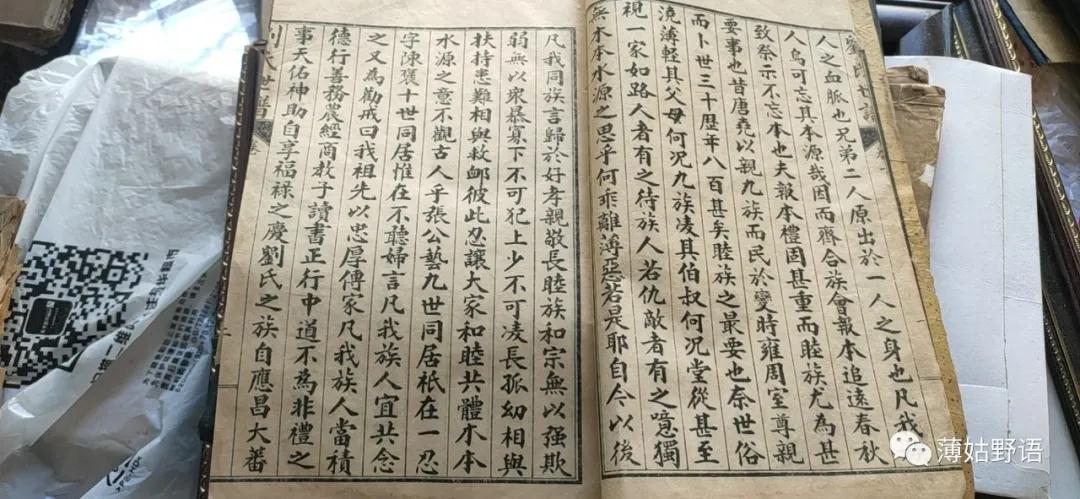 劉氏世譜
人之血脈也兄弟二人原出於一人之身也凡我
人烏可忘其本源哉因而齊合族會報本追遠春秋
致祭示不忘本也夫報本禮固甚重而睦族尤為甚
要事也昔唐堯以親九族而民於變時雍周室尊親
而卜世三十歷年八百甚矣睦族之最要也奈世俗
澆薄輕其父母何況九族凌其伯叔何況堂從甚至
視一家如路人者有之待族人若仇敵者有之噫獨
無木本水源之思乎何乖離薄惡若是耶自今以後
凡我同族言歸於好孝親敬長睦族和宗無以強欺
弱無以衆暴寡下不可犯上少不可凌長孤幼相與
扶持患難相與救卹彼此忍讓大家和睦共體木本
水源之意不觀古人乎張公藝九世同居祇在一忍
字陳褒十世同居惟在不聽婦言凡我族人宜共念
之又為勸戒曰我祖先以忠厚傳家凡我族人當積
德行善務農經商教子讀書正行中道不為非禮之
事天佑神助自享福祿之慶劉氏之族自應昌大蕃
氏世譜
薄姑野语